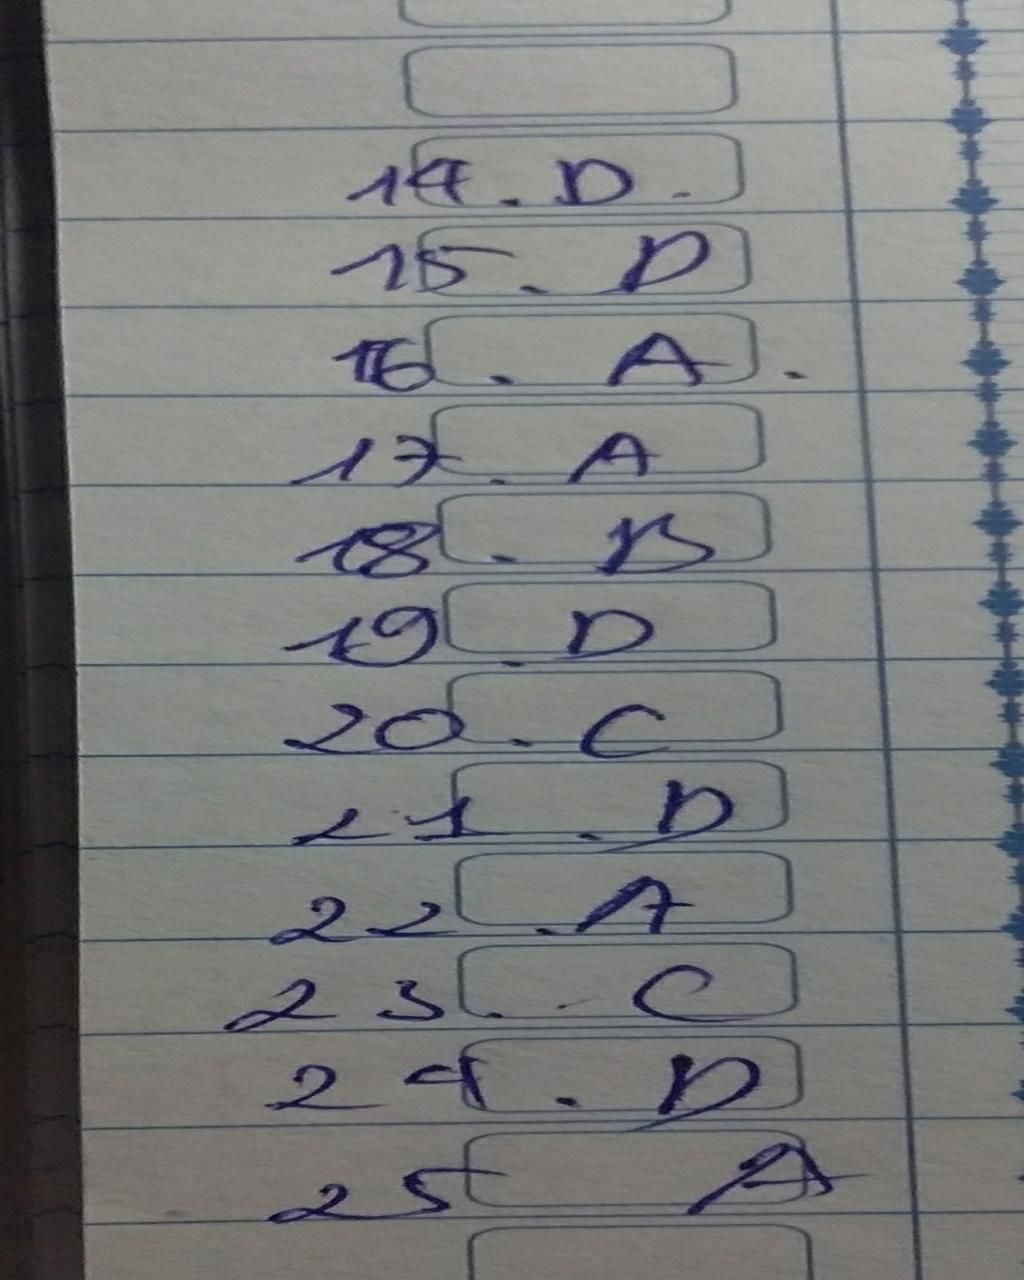 14. D.
15. D
16. A.
17. A
18. B
19. D
20. C
21. D
22. A
23. C
24. D
25 A